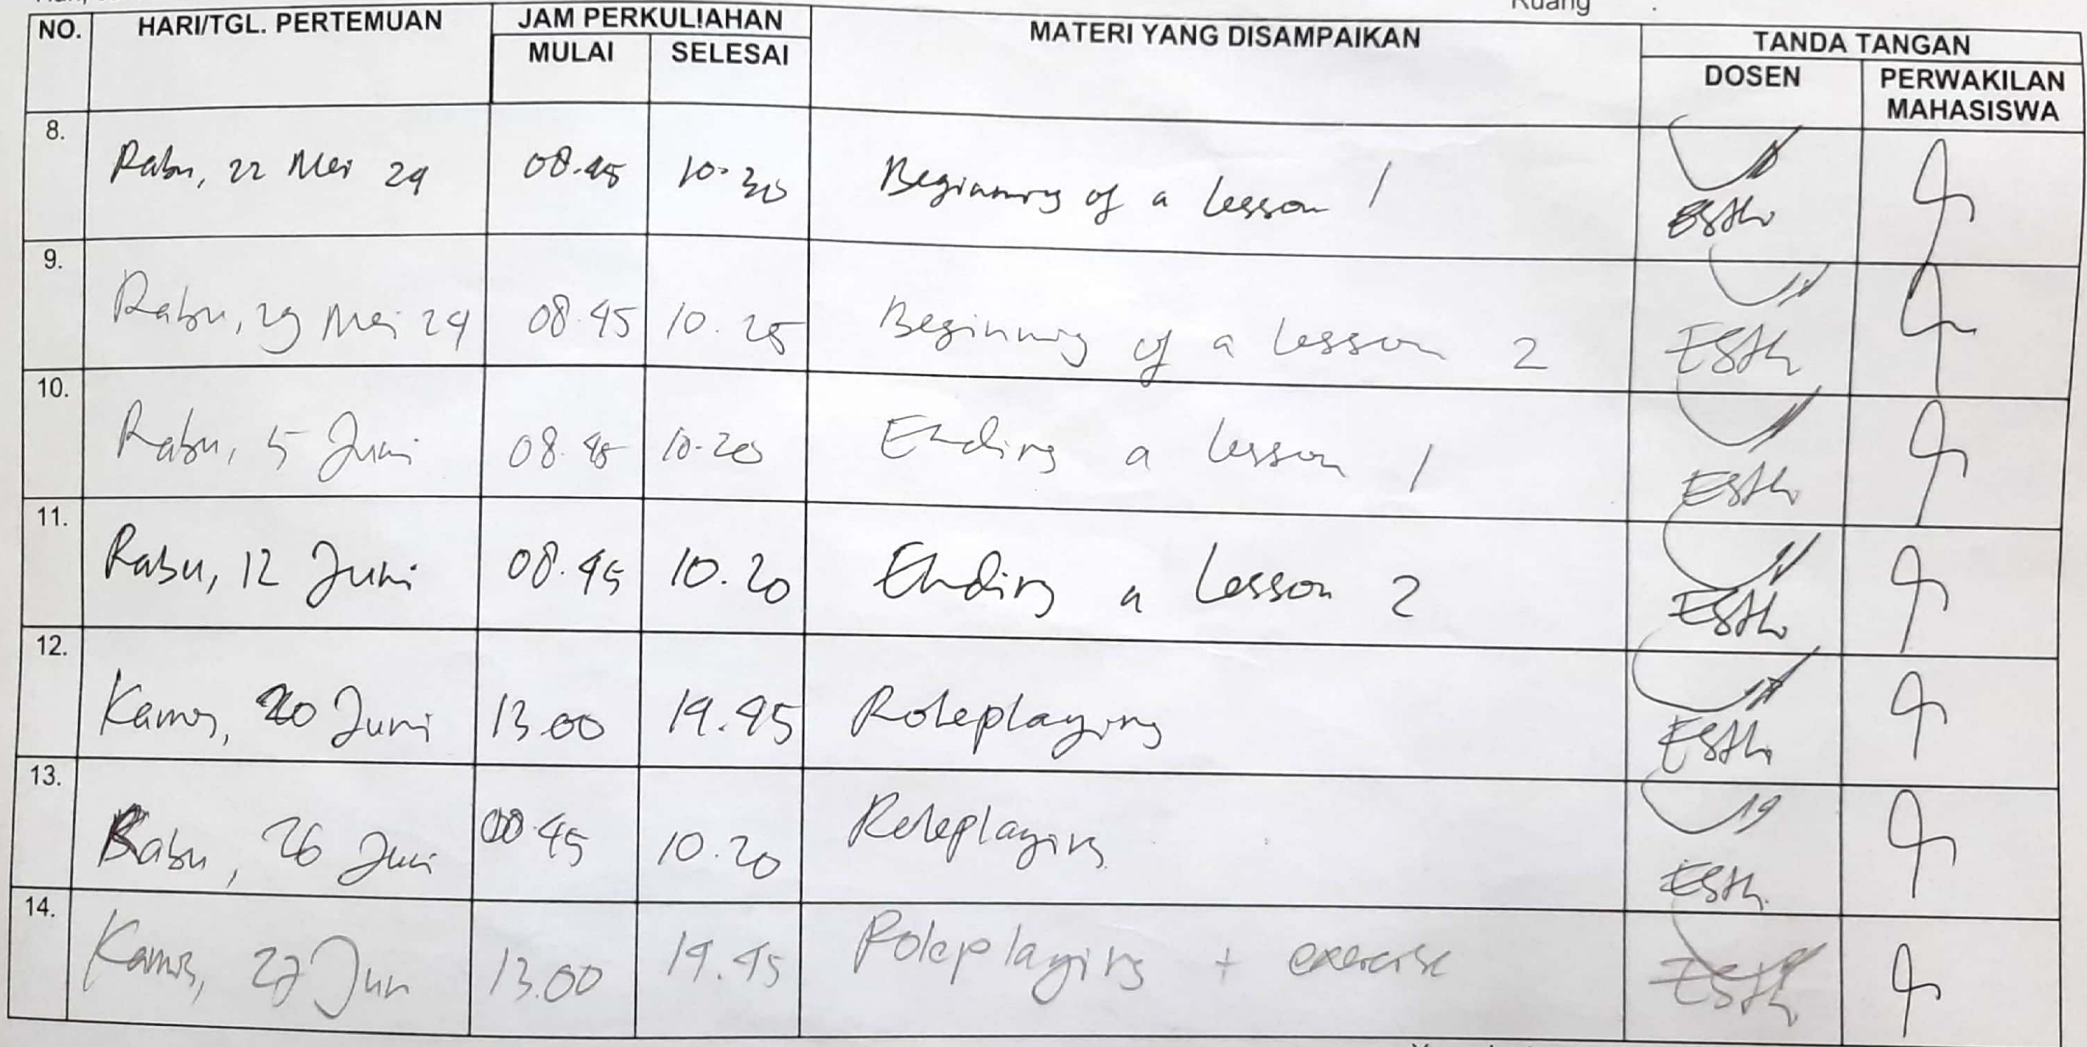 Ruang :
NO. HARI/TGL. PERTEMUAN JAM PERKULIAHAN MATERI YANG DISAMPAIKAN TANDA TANGAN
MULAI SELESAI DOSEN PERWAKILAN MAHASISWA
8. Rabu, 22 Mei 24 08.45 10.30 Beginning of a lesson 1 Esth
9. Rabu, 29 Mei 24 08.45 10.25 Beginning of a lesson 2 Esth
10. Rabu, 5 Juni 08.45 10.20 Ending a lesson 1 Esth
11. Rabu, 12 Juni 08.45 10.20 Ending a lesson 2 Esth
12. Kamis, 20 Juni 13.00 14.45 Roleplaying Esth
13. Rabu, 26 Juni 08.45 10.20 Roleplaying Esth
14. Kamis, 27 Jun 13.00 14.45 Roleplaying + exercise Esth